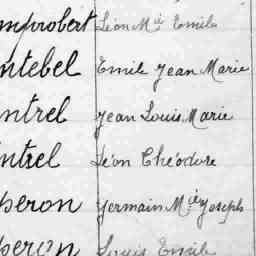 mprobert Léon Mie Emile
ntebel Emile Jean Marie
ntrel Jean Louis Marie
ntrel Léon Théodore
peron Germain Mie Joseph
peron Louis Emile